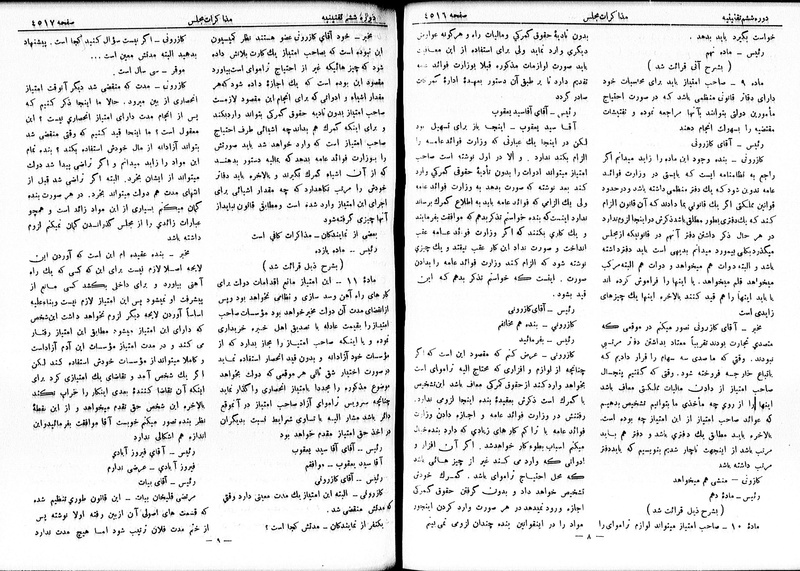 دوره ششم تقنینیه
مذاکرات مجلس
صفحه ۴۵۱۶
خواست بگیرد باید بدهد .
رئیس ــ ماده نهم
( بشرح آتی قرائت شد )
ماده ۹ ــ صاحب امتیاز باید برای محاسبات خود
دارای دفاتر قانونی منظمی باشد که در صورت احتیاج
مأمورین دولتی بتوانند بآنها مراجعه نموده و تفتیشات
مقتضیه را بسهولت انجام دهند
رئیس ــ آقای کازرونی
کازرونی ــ بنده وجود این ماده را زاید میدانم اگر
راجع به نظامنامه ایست که بایستی در وزارت فوائد
عامه تدوین شود که یک دفتر منظمی داشته باشد و در حدود
قوانین مملکتی اگر یک قانونی بما دادند که آن قانون الزام
کند که یک دفتری بطور مطابق باشد ذکرش در اینجا لزوم ندارد
در هر حال ذکر داشتن دفتر آنهم در قانونیکه از مجلس
میگذرد بکلی بیمورد میدانم بدیهی است باید دفتر داشته
باشد و البته دوات هم میخواهد و دوات هم البته مرکب
میخواهد قلم میخواهد. یا اینها را فراموش کرده اند
یا باید اینها را هم قید کنند بالاخره اینها یک چیزهای
زایدی است
مخبر ــ آقای کازرونی تصور میکنم در موقعی که
متصدی تجارت بودند تقریباً معتاد بداشتن دفتر مرتبی
نبودند . وقتی که ما صدی سه سهام را قرار دادیم که
باتباع خارجه فروخته شود . وقتی که گفتیم پنجسال
صاحب امتیاز از دادن مالیات مملکتی معاف باشد
اینها را از روی چه مأخذی ما بتوانیم تشخیص بدهیم
که عوائد صاحب امتیاز از این امتیاز چه بوده است.
بالاخره باید مطابق یک دفتری باشد و دفتر هم باید
مرتب باشد از اینجهت ناچار شدیم بنویسیم که باید دفتر
مرتب داشته باشد
کازرونی ــ منشی هم میخواهد
رئیس ــ ماده دهم
( بشرح ذیل قرائت شد )
ماده ۱۰ ــ صاحب امتیاز میتواند لوازم تراموای را
بدون تادیه حقوق گمرکی و مالیات راه و هرگونه عوارض
دیگری وارد نماید ولی برای استفاده از این معافیت
باید صورت لوازمات مذکوره قبلا بوزارت فوائد عامه
تقدیم دارد تا بر طبق آن دستور بعهدۀ ادارۀ گمرکات
صادر گردد
رئیس ــ آقای آقا سید یعقوب
آقا سید یعقوب ــ اینجا باز برای تسهیل بود
لکن در اینجا یک عبارتی که وزارت فوائد عامه را
الزام بکند ندارد . و الا در اول نوشته است صاحب
امتیاز میتواند ادوات را بدون تأدیۀ حقوق گمرکی وارد
کند بعد نوشته که صورت بدهد به وزارت فوائد عامه
ولی یک الزامی که فوائد عامه باید به اطلاع گمرک برساند
ندارد اینست که بنده خواستم تذکر بدهم که موافقت بفرمایند
و یک کاری بکنند که اگر وزارت فوائد عامه عقب
انداخت و صورت نداد این کار عقب نیفتد و یک چیزی
نوشته شود که الزام کند وزارت فوائد عامه را بدادن
صورت . اینست که خواستم تذکر بدهم که این
قید بشود .
رئیس ــ آقای کازرونی
کازرونی ــ بنده هم مخالفم
رئیس ــ بفرمائید
کازرونی ــ عرض کنم که مقصود این است که اگر
چنانچه از لوازم و افزاری که محتاج الیه تراموای است
بخواهد وارد کند از حقوق گمرکی معاف باشد این تشخیص
با گمرک است ذکرش بعقیدۀ بنده اینجا لزومی ندارد .
رفتنش در وزارت فوائد عامه و اجازه دادن وزارت
فوائد عامه با تراکم کارهای زیادی که دارد بنده خیال
میکنم اسباب بطوء کار خواهد شد . اگر آن افزار و
ادواتی که وارد می کنند غیر از چیز هائی باشد
که محل احتیاج تراموای باشد . گمرک خودش
تشخیص خواهد داد و بدون گرفتن حقوق گمرکی
اجازه ورود نمیدهد در هر صورت وارد کردن اینجور
مواد را در اینقوانین بنده چندان لزومی نمی بینم
ــ ۸ ــ
دورۀ ششم تقنینیه
مذاکرات مجلس
صفحه ۴۵۱۷
مخبر ــ خود آقای کازرونی عضو هستند نظر کمیسیون
این نبوده است که بصاحب امتیاز یک کارت بلانش داده
شود که هر چیزهائیکه غیر از احتیاج تراموای است بیاورد
مقصود این بوده است که یک اجازۀ داده شود که هر
مقدار اشیاء و ادواتی که برای انجام این مقصود لازمست
صاحب امتیاز بدون تادیه حقوق گمرکی بتواند وارد بکند
و برای اینکه گمرک هم بداند چه اشیائی طرف احتیاج
صاحب امتیاز است که وارد خواهد شد باید صورتش
را بوزارت فوائد عامه بدهد که بمالیه دستور بدهند
که از آن اشیاء گمرک نگیرند و بالاخره باید دفاتر
خودش را مرتب نگاهدارد که چه مقدار اشیائی برای
اجرای این امتیاز وارد شده است و مطابق قانون نباید از
آنها چیزی گرفته شود
بعضی از نمایندگان ــ مذاکرات کافی است
رئیس ــ ماده یازده
( بشرح ذیل قرائت شد )
مادۀ ۱۱ ــ این امتیاز مانع اقدامات دولت برای
کار های راه آهن و سد سازی و نظامی نخواهد بود و پس
از انقضای مدت آن دولت مخیر خواهد بود مؤسسات صاحب
امتیاز را بقیمت عادله با تصدیق اهل خبره خریداری
نموده و یا اینکه صاحب امتیاز را مجاز بدارد که از
مؤسسات خود آزادانه و بدون قید انحصار استفاده نماید
در صورت اختیار شق ثانی هر موقعی که دولت بخواهد
موضوع مذکوره را مجدداً بامتیاز انحصاری واگذار نماید
چنانچه سرویس تراموای آزاد صاحب امتیاز در آنموقع
دائر باشد مشارالیه با تساوی شرایط نسبت بدیگران
در اخذ حق امتیاز مقدم خواهد بود
رئیس ــ آقای آقا سید یعقوب
آقا سید یعقوب ــ موافقم
رئیس ــ آقای کازرونی
کازرونی ــ البته این امتیاز یک مدت معینی دارد وقتی
که مدتش منقضی شد .
یکنفر از نمایندگان ــ مدتش کجا است ؟
کازرونی ــ اگر نیست سؤال کنید کجا است . پیشنهاد
بدهید البته مدتش معین است ...
موقر ــ سی سال است .
کازرونی ــ مدت که منقضی شد دیگر آنوقت امتیاز
انحصاری از بین میرود . حالا ما اینجا ذکر کنیم که
پس از انجام مدت دارای امتیاز انحصاری نیست ؟ این
معقول است ؟ ما اینجا قید کنیم که وقتی منقضی شد
بتواند آزادانه از مال خودش استفاده بکند ؟ بنده تمام
این مواد را زاید میدانم و اگر تراضی پیدا شد دولت
میتواند از ایشان بخرد . البته اگر تراضی شد قبل از
انتهای مدت هم دولت میتواند بخرد . در هر صورت بنده
گمان میکنم بسیاری از این مواد زائد است و همچو
عبارات زائدی را از مجلس گذراندن گمان نمیکنم لزوم
داشته باشد
مخبر ــ بنده عقیده ام این است که آوردن این
لایحه اصلا لازم نیست برای این که کسی که یک راه
آهنی بیاورد و برای داخل بکشد کسی مانع از
پیشرفت او نمیشود پس این امتیاز لازم نیست و بناءعلیه
اساساً آوردن لایحه دیگر لزوم نخواهد داشت این شخص
که دارای این امتیاز میشود مطابق این امتیاز رفتار
می کند و در مدت امتیاز مؤسسات این آدم آزاد است
و کاملا میتواند از مؤسسات خودش استفاده کند لکن
اگر یک شخص آمد و تقاضای یک امتیازی کرد برای
اینکه آن تقاضا کنندۀ بعدی اینکار را خراب نکند
بالاخره این شخص حق تقدم میخواهد و از این نقطۀ
نظر بنده تصور میکنم خوبست آقا موافقت بفرمائید و این
اندازه هم اشکالی ندارد
رئیس ــ آقای فیروز آبادی
فیروز آبادی ــ عرضی ندارم
رئیس ــ آقای بیات
مرتضی قلیخان بیات ــ این قانون طوری تنظیم شده
که قسمت های اصولی آن از بین رفته اولا نوشته پس
از ختم مدت فلان ترتیب شود اما هیچ مدت ندارد
ــ ۹ ــ